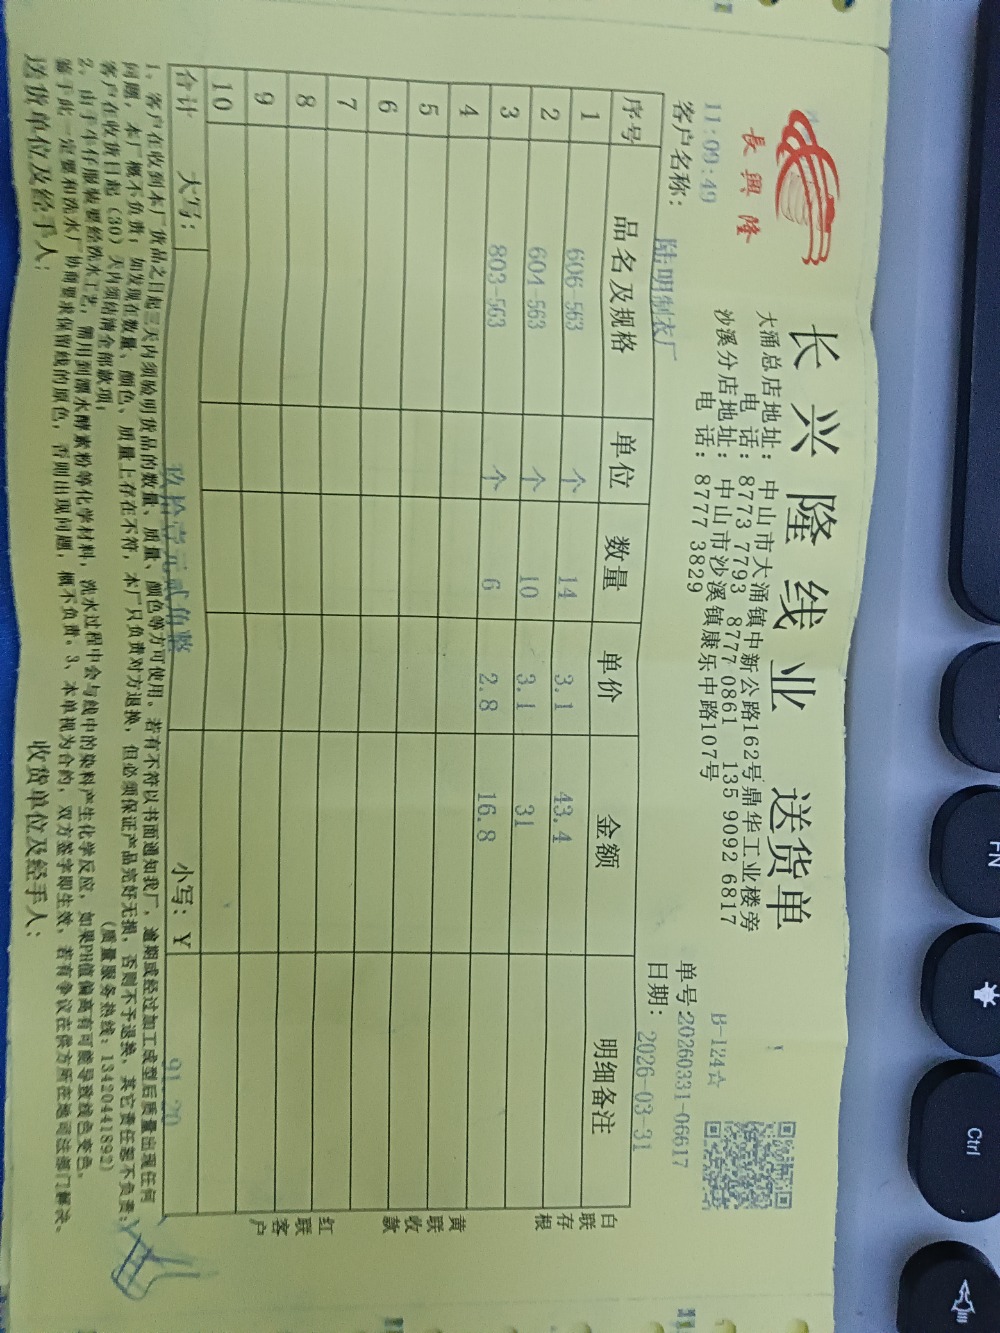 長興隆
长兴隆线业 送货单
大涌总店地址：中山市大涌镇中新公路162号鼎华工业楼旁
电 话：8773 7793 8777 0861 135 9092 6817
沙溪分店地址：中山市沙溪镇康乐中路107号
电 话：8777 3829
B-124☆
11:09:49
单号:20260331-06617
客户名称： 陆明制衣厂
日期： 2026-03-31
序号 品名及规格 单位 数量 单价 金额 明细备注
1 606-563 个 14 3.1 43.4
2 604-563 个 10 3.1 31
3 803-563 个 6 2.8 16.8
4
5
6
7
8
9
10
合计 大写： 玖拾壹元贰角整 小写：￥ 91.20
白联存根
黄联收款
红联客户
1、客户在收到本厂货品之日起三天内须验明货品的数量、质量、颜色等方可使用。若有不符以书面通知我厂，逾期或经过加工成型后质量出现任何
问题，本厂概不负责；如发现在数量、颜色、质量上存在不符，本厂只负责对方退换，但必须保证产品完好无损，否则不予退换，其它责任恕不负责；
客户在收货日起（30）天内须结清全部款项；（质量服务热线：13420441892）
2、由于牛仔服装要经洗水工艺，需用到漂水酵素粉等化学材料，洗水过程中会与线中的染料产生化学反应，如果PH值偏高有可能导致线色变色，
鉴于此一定要和洗水厂协商要求保留线的原色，否则出现问题，概不负责。3、本单视为合约，双方签字即生效，若有争议在供方所在地司法部门解决。
送货单位及经手人：
收货单位及经手人：
FN
Ctrl